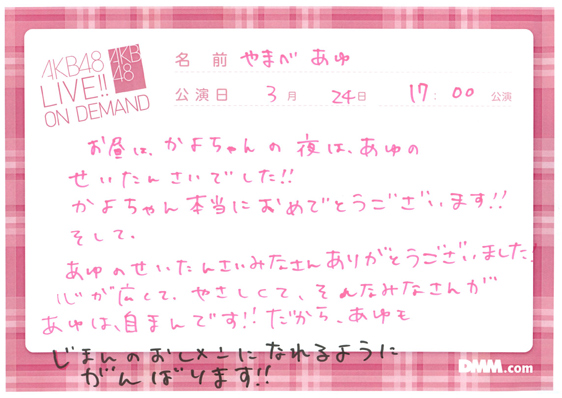 AKB48
LIVE!!
ON DEMAND
AKB
48
名 前 やまべ あゆ
公演日 3月 24日 17:00 公演
お昼は、かよちゃんの夜は、あゆの
せいたんさいでした!!
かよちゃん本当におめでとうございます!!
そして、
あゆのせいたんさいみなさんありがとうございました!
心が広くて、やさしくて、そんなみなさんが
あゆは、自まんです!!だから、あゆも
じまんのおしメンになれるように
がんばります!!
DMM.com